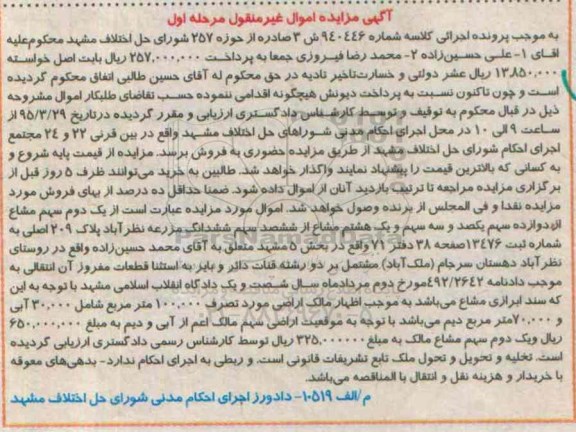 آگهی مزایده اموال غیرمنقول مرحله اول
به موجب پرونده اجرائی کلاسه شماره ۹۴۰۴۴۶ ش ۳ صادره از حوزه ۲۵۷ شورای حل اختلاف مشهد محکوم‌علیه
اقای ۱- علی حسین‌زاده ۲- محمد رضا فیروزی جمعا به پرداخت ۲۵۷,۰۰۰,۰۰۰ ریال بابت اصل خواسته
۱۳,۸۵۰,۰۰۰ ریال عشر دولتی و خسارت‌تاخیر تادیه در حق محکوم له آقای حسین طالبی اتفاق محکوم گردیده
است و چون تاکنون نسبت به پرداخت دیونش هیچگونه اقدامی ننموده حسب تقاضای طلبکار اموال مشروحه
ذیل در قبال محکوم به توقیف و توسط کارشناس دادگستری ارزیابی و مقرر گردیده درتاریخ ۹۵/۳/۲۹ از
ساعت ۹ الی ۱۰ در محل اجرای احکام مدنی شوراهای حل اختلاف مشهد واقع در بین قرنی ۲۲ و ۲۴ مجتمع
اجرای احکام شورای حل اختلاف مشهد از طریق مزایده حضوری به فروش برسد. مزایده از قیمت پایه شروع و
به کسانی که بالاترین قیمت را پیشنهاد نمایند واگذار خواهد شد. طالبین به خرید می‌توانند ظرف ۵ روز قبل از
برگزاری مزایده مراجعه تا ترتیب بازدید آنان از اموال داده شود. ضمنا حداقل ده درصد از بهای فروش مورد
مزایده نقدا و فی المجلس از برنده وصول خواهد شد. اموال مورد مزایده عبارت است از یک دوم سهم مشاع
از دوازده سهم یکصد و سه سهم و یک هشتم مشاع از ششصد سهم ششدانگ مزرعه نظرآباد پلاک ۲۰۹ اصلی به
شماره ثبت ۱۳۴۷۶ صفحه ۳۸ دفتر ۷۱ واقع در بخش ۵ مشهد متعلق به آقای محمد حسین‌زاده واقع در روستای
نظرآباد دهستان سرجام (ملک‌آباد) مشتمل بر دو رشته قنات دائر و بایر به استثنا قطعات مفروز آن انتقالی به
موجب دادنامه ۴۹۲/۲۶۴۲ مورخ دوم مردادماه سال شصت و یک دادگاه انقلاب اسلامی مشهد با توجه به این
که سند ابرازی مشاع می‌باشد به موجب اظهار مالک اراضی مورد تصرف ۱۰۰,۰۰۰ متر مربع شامل ۳۰,۰۰۰ آبی
و ۷۰,۰۰۰ متر مربع دیم می‌باشد با توجه به موقعیت اراضی سهم مالک اعم از آبی و دیم به مبلغ ۶۵۰,۰۰۰,۰۰۰
ریال ویک دوم سهم مشاع مالک به مبلغ ۳۲۵,۰۰۰۰۰۰ ریال توسط کارشناس رسمی دادگستری ارزیابی گردیده
است. تخلیه و تحویل و تحول ملک تابع تشریفات قانونی است. و ربطی به اجرای احکام ندارد- بدهی‌های معوقه
با خریدار و هزینه نقل و انتقال با المناقصه می‌باشد.
م/الف ۱۰۵۱۹- دادورز اجرای احکام مدنی شورای حل اختلاف مشهد